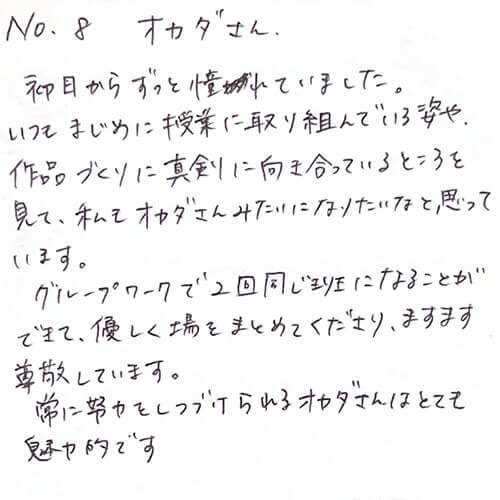 No. 8 オカダさん.
初日からずっと憧れていました。
いつもまじめに授業に取り組んでいる姿や、
作品づくりに真剣に向き合っているところを
見て、私もオカダさんみたいになりたいなと思って
います。
グループワークで2回同じ班になることが
できて、優しく場をまとめてくださり、ますます
尊敬しています。
常に努力をしつづけられるオカダさんはとても
魅力的です